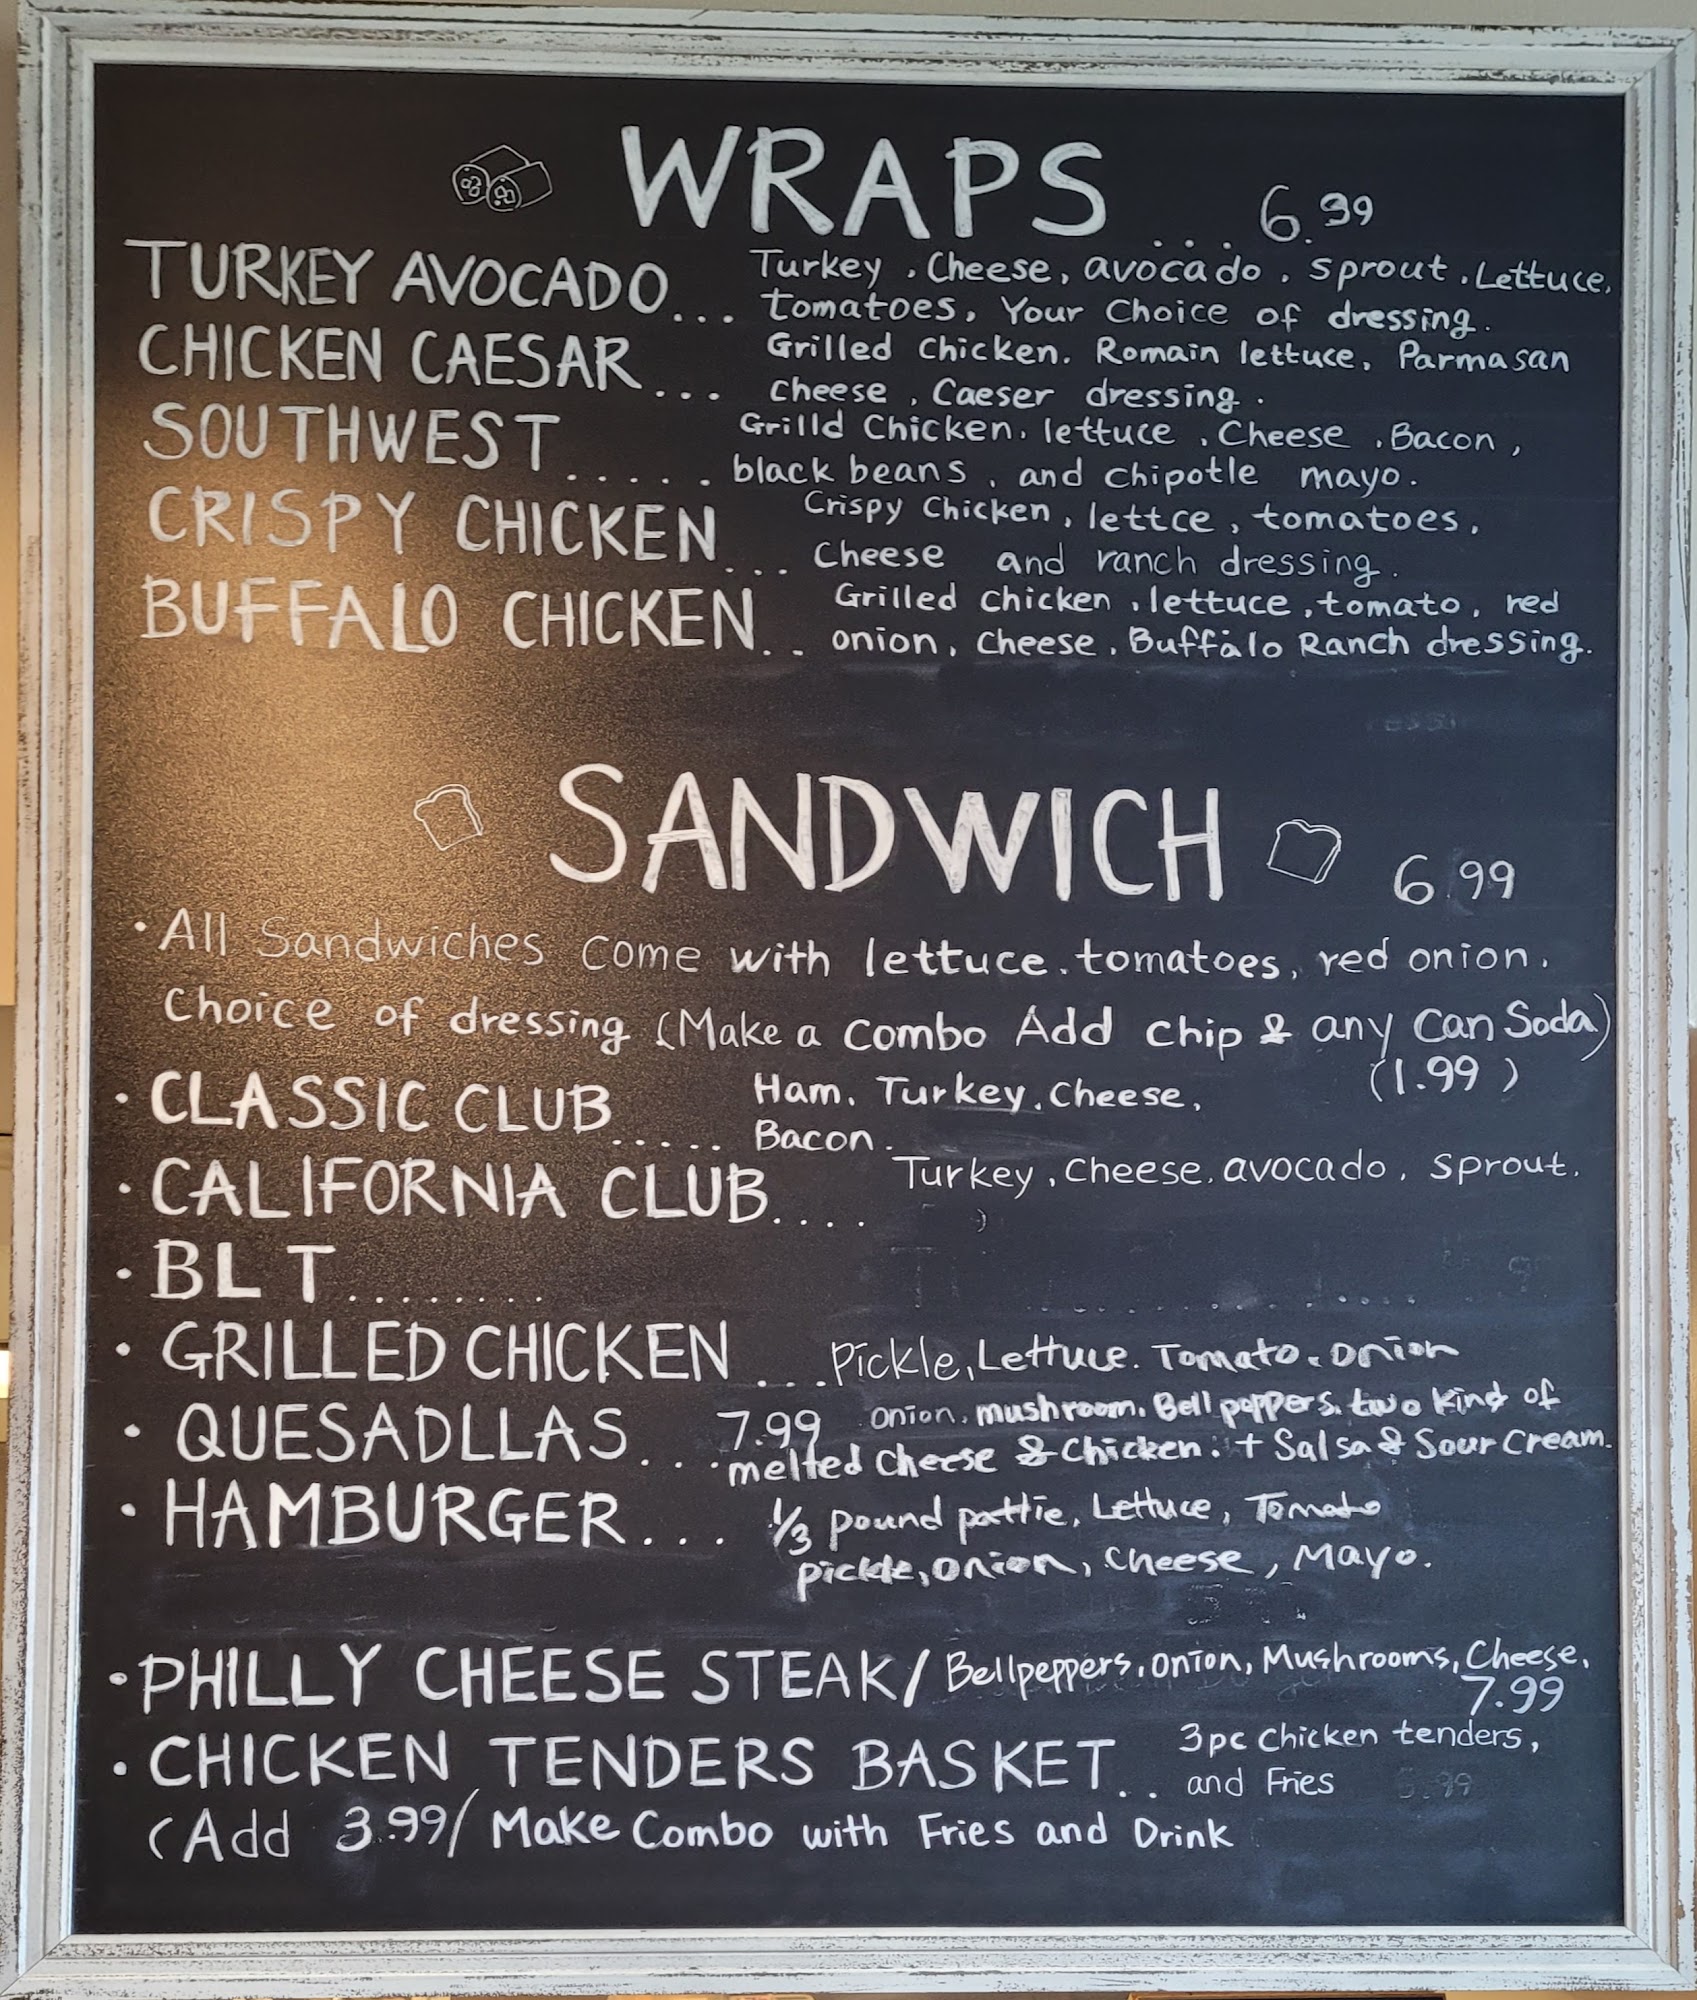 WRAPS ... 6.99
TURKEY AVOCADO... Turkey, Cheese, avocado, sprout, Lettuce,
tomatoes, Your Choice of dressing.
CHICKEN CAESAR... Grilled Chicken. Romain lettuce, Parmasan
Cheese, Caeser dressing.
SOUTHWEST..... Grilld Chicken, lettuce, Cheese, Bacon,
black beans, and Chipotle mayo.
CRISPY CHICKEN... Crispy Chicken, lettce, tomatoes,
Cheese and ranch dressing.
BUFFALO CHICKEN.. Grilled Chicken, lettuce, tomato, red
onion, Cheese, Buffalo Ranch dressing.
SANDWICH 6.99
• All Sandwiches Come with lettuce. tomatoes, red onion.
Choice of dressing (Make a Combo Add Chip & any Can Soda)
(1.99)
• CLASSIC CLUB..... Ham, Turkey, Cheese,
Bacon.
• CALIFORNIA CLUB.... Turkey, Cheese, avocado, Sprout.
• BLT........
• GRILLED CHICKEN ... Pickle, Lettuce. Tomato. Onion
• QUESADLLAS... 7.99 Onion, mushroom, Bell peppers, two Kind of
melted Cheese & Chicken. + Salsa & Sour Cream.
• HAMBURGER... 1/3 pound pattie, Lettuce, Tomato
pickle, Onion, Cheese, Mayo.
• PHILLY CHEESE STEAK/ Bellpeppers, Onion, Mushrooms, Cheese,
7.99
• CHICKEN TENDERS BASKET.. 3pc Chicken tenders,
and Fries
(Add 3.99/ Make Combo with Fries and Drink